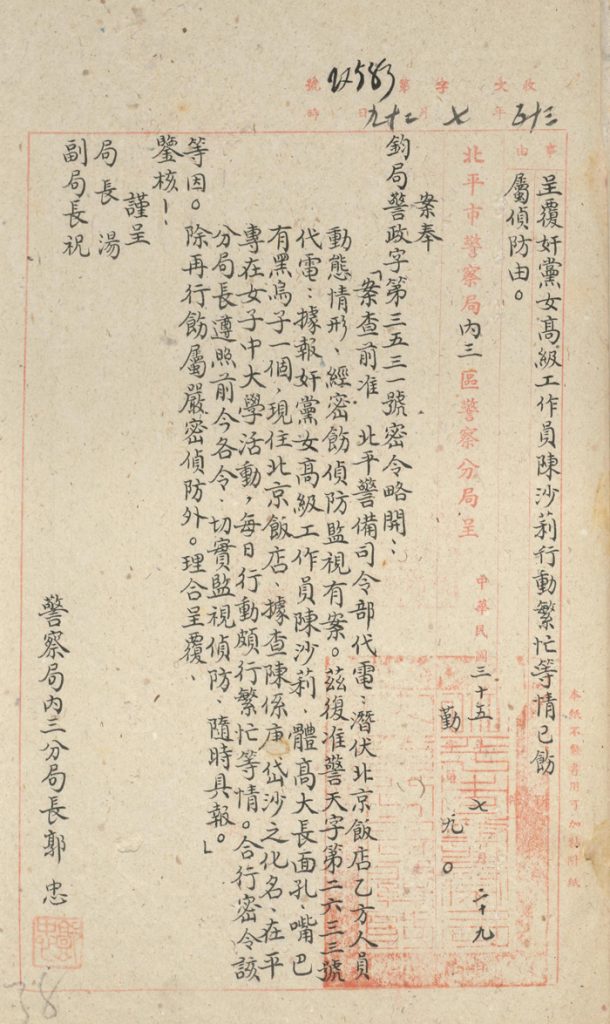 收文 字第 號
三十五年七月二十九日 時
事由
呈覆奸黨女高級工作員陳沙莉行動繁忙等情已飭
屬偵防由。
北平市警察局內三區警察分局呈
中華民國三十五年七月二十九
勤 九
案奉
鈞局警政字第三五三一號密令略開：
「案查前准 北平警備司令部代電：潛伏北京飯店乙方人員
動態情形、經密飭偵防監視有案。茲復准警天字第二六三三號
代電：據報奸黨女高級工作員陳沙莉、體高大長面孔、嘴巴
有黑烏子一個、現住北京飯店、據查陳係岱沙之化名、在平
專在女子中大學活動，每日行動頗行繁忙等情。合行密令該
分局長遵照前今各令、切實監視偵防、隨時具報。」
等因。除再行飭屬嚴密偵防外。理合呈覆、
鑒核！
謹呈
局長湯
副局長祝
警察局內三分局長郭忠
38